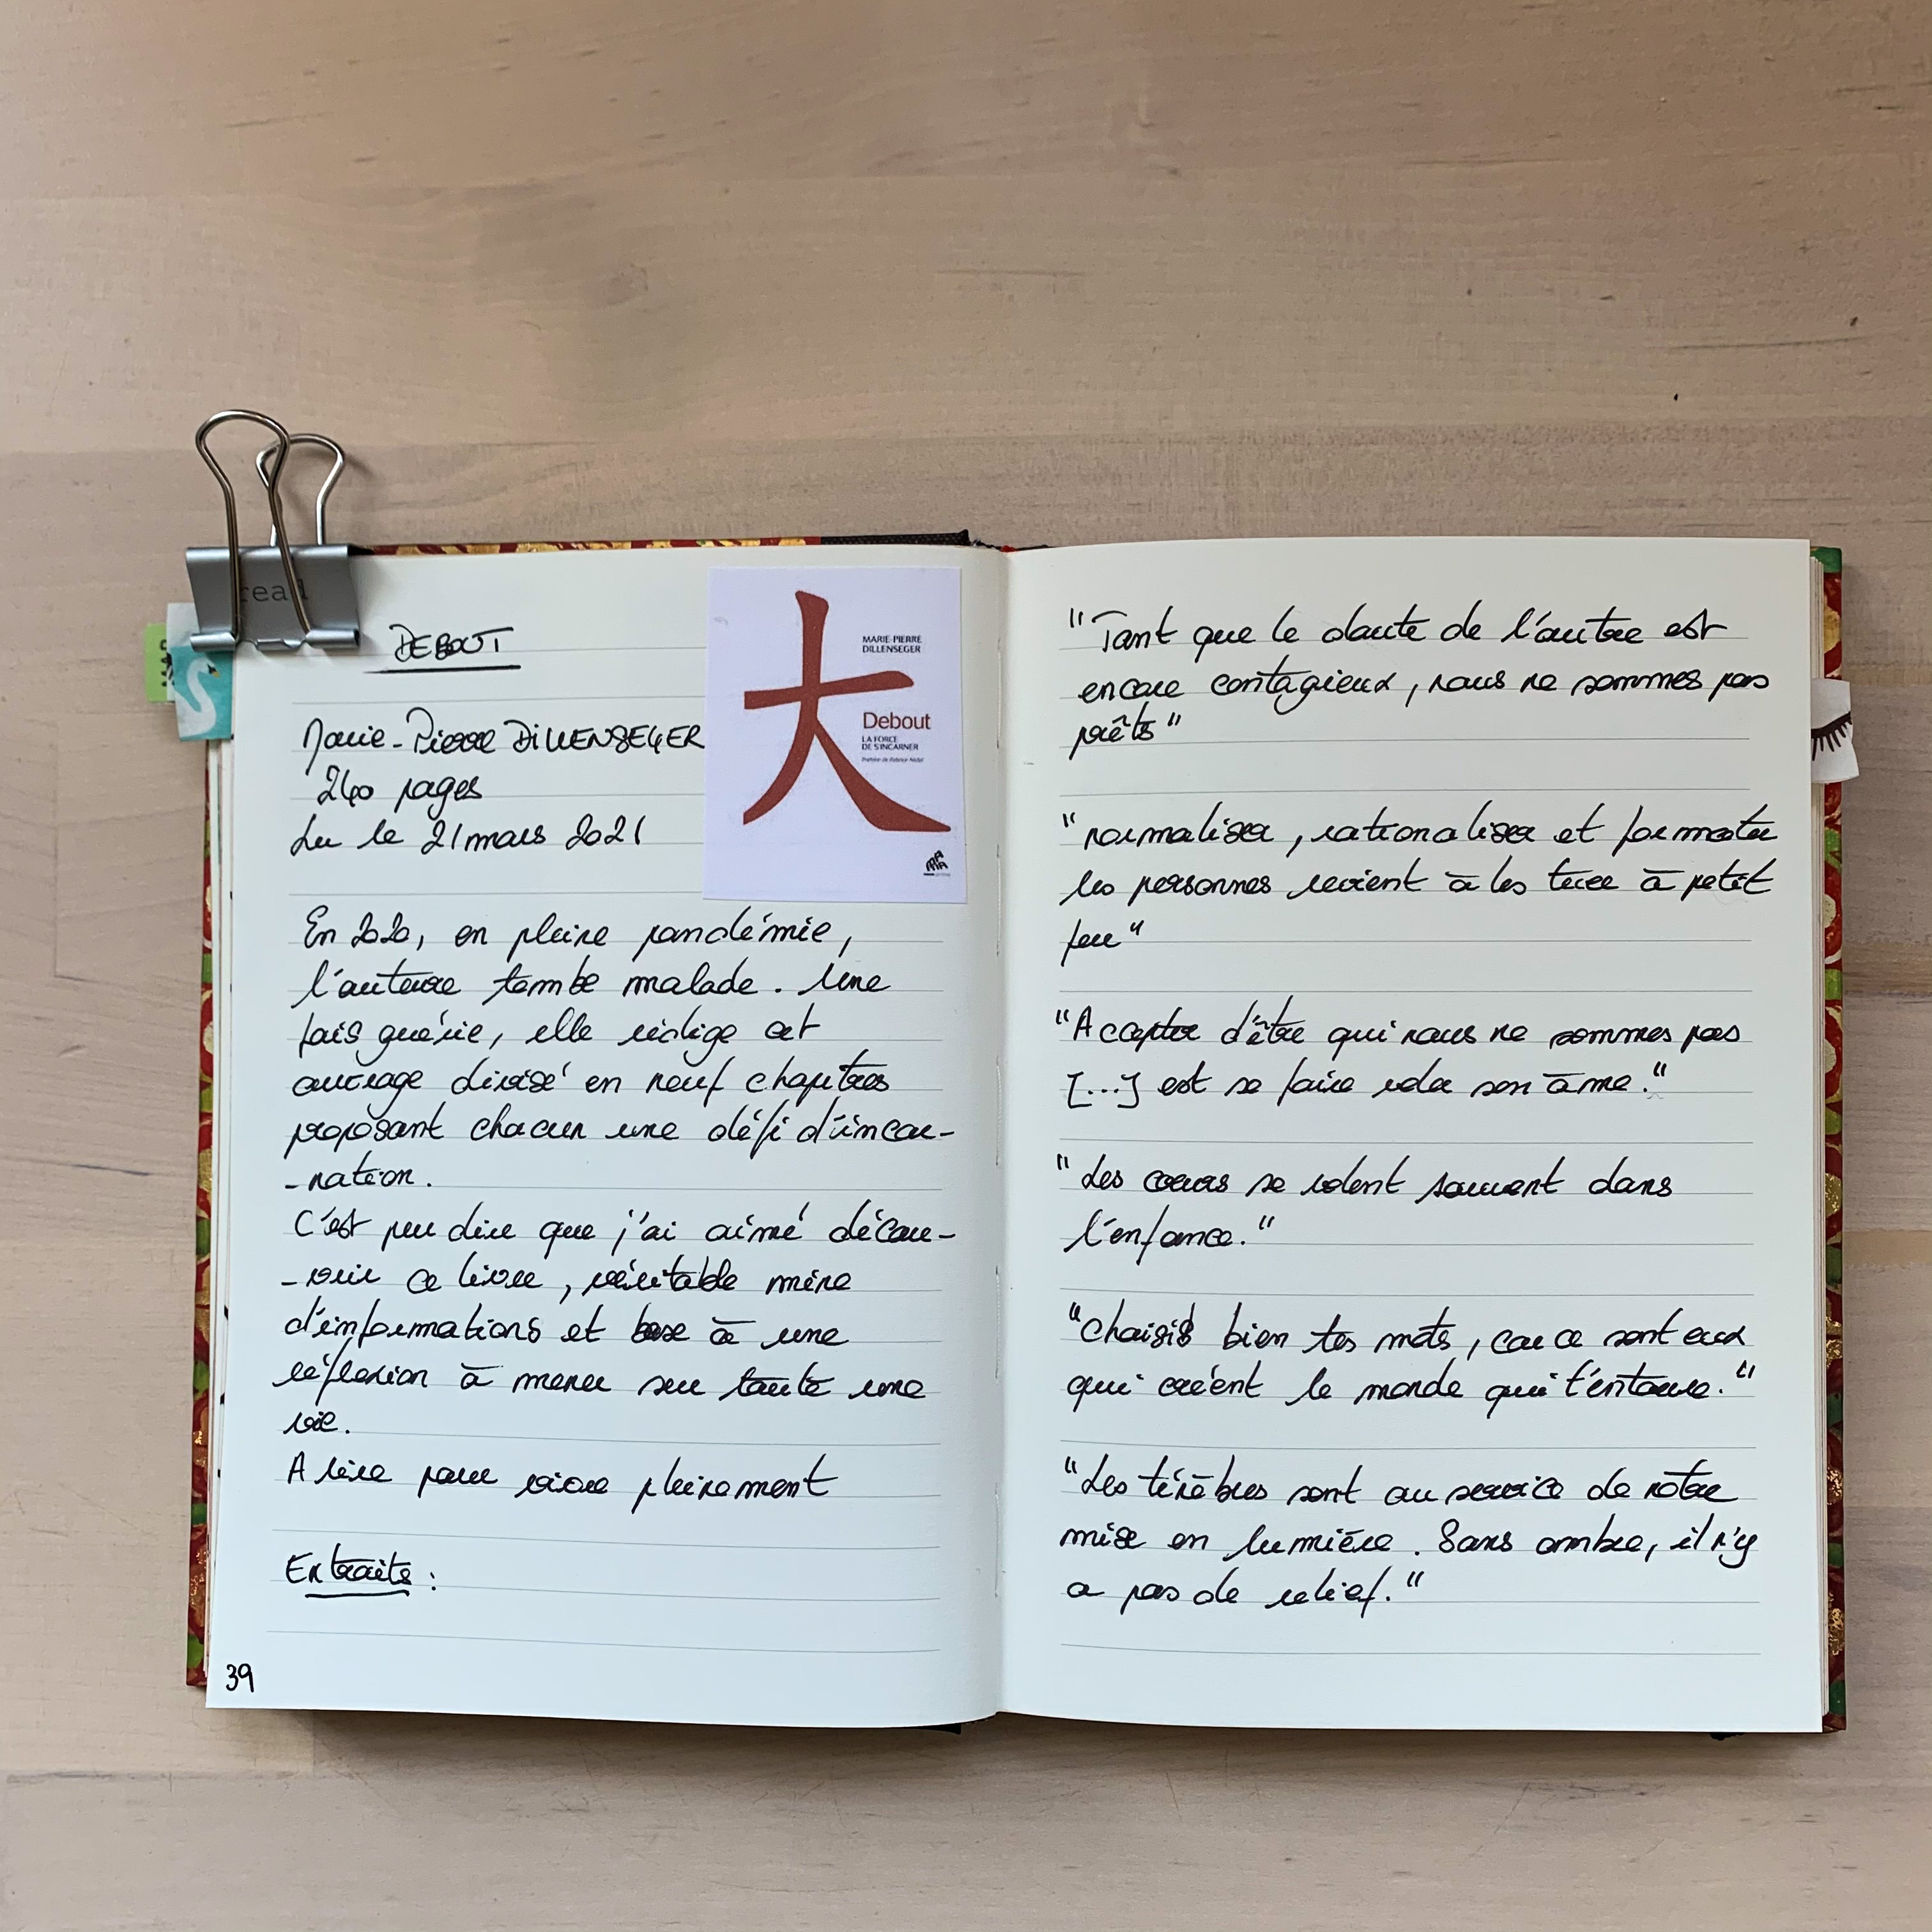 read
DEBOUT
Marie-Pierre DILLENSEGER
240 pages
Lu le 21 mars 2021
大
MARIE-PIERRE
DILLENSEGER
Debout
LA FORCE
DE S'INCARNER
En 2020, en pleine pandémie,
l'auteure tombe malade. Une
fois guérie, elle rédige cet
ouvrage divisé en neuf chapitres
proposant chacun une défi d'incar-
-nation.
C'est peu dire que j'ai aimé décou-
-vrir ce livre, véritable mine
d'informations et base à une
réflexion à mener sur toute une
vie.
A lire pour vivre pleinement
Extraits :
39
"Tant que le doute de l'autre est
encore contagieux, nous ne sommes pas
prêts"
"normaliser, rationaliser et formater
les personnes revient à les tuer à petit
feu"
"Accepter d'être qui nous ne sommes pas
[...] est se faire voler son âme."
"Les coeurs se volent souvent dans
l'enfance."
"Choisis bien tes mots, car ce sont eux
qui créent le monde qui t'entoure."
"Les ténèbres sont au service de notre
mise en lumière. Sans ombre, il n'y
a pas de relief."